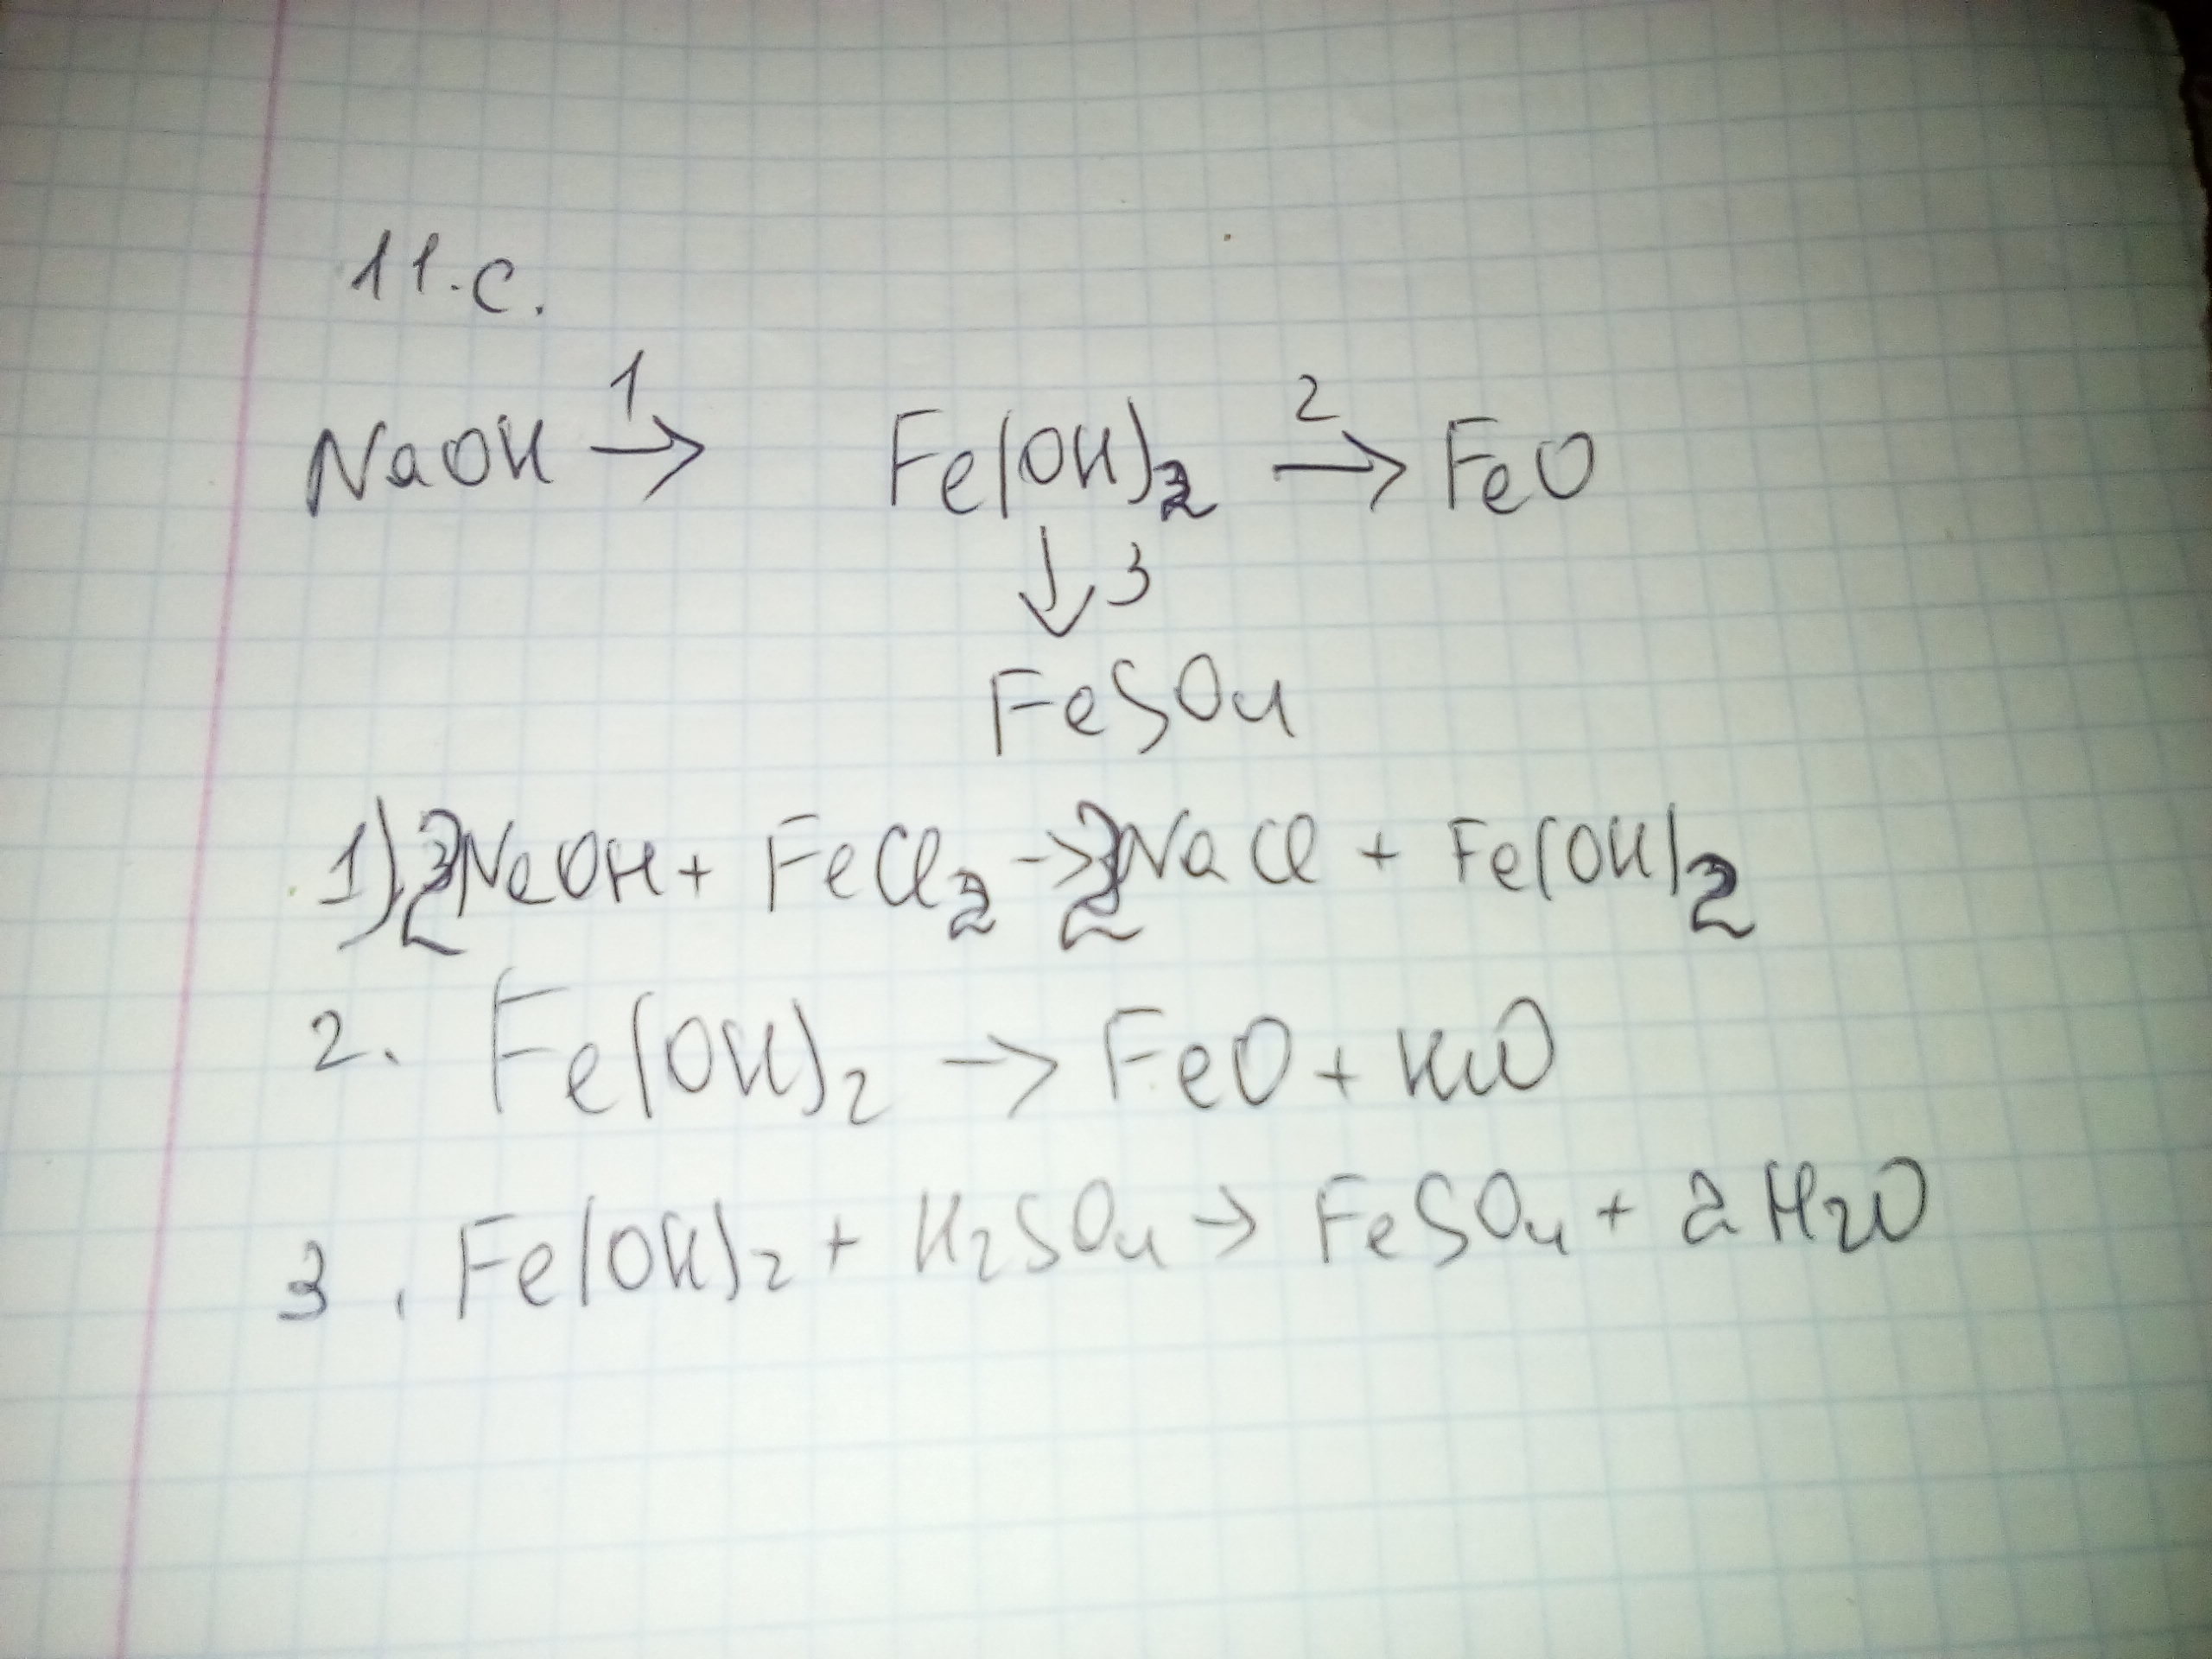 11.c.
NaOH 1→ Fe(OH)2 2→ FeO
↓3
FeSO4
1) 2NaOH + FeCl2 → 2NaCl + Fe(OH)2
2. Fe(OH)2 → FeO + H2O
3. Fe(OH)2 + H2SO4 → FeSO4 + 2H2O